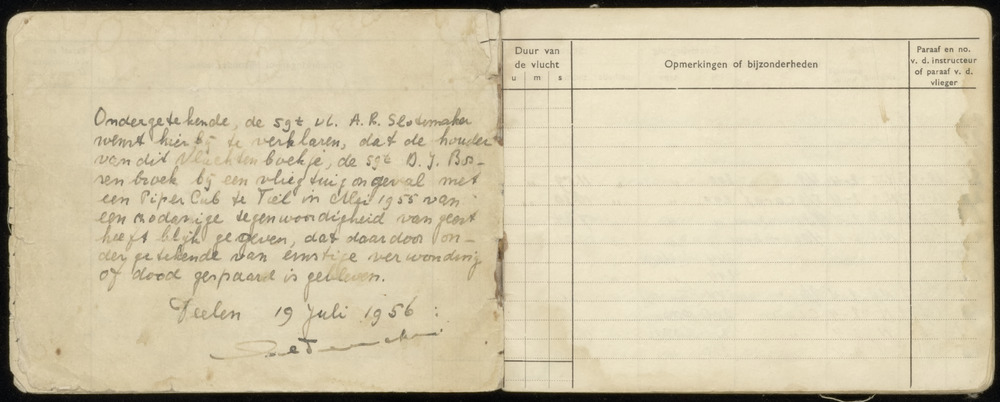 Ondergetekende, de sgt vl. A.R. Slotemaker
wenst hierbij te verklaren, dat de houder
van dit vluchtenboekje, de sgt D.J. Bos-
senbroek bij een vliegtuigongeval met
een Piper Cub te Tiel in Mei 1955 van
een zodanige tegenwoordigheid van geest
heeft blijk gegeven, dat daardoor on-
dergetekende van ernstige verwonding
of dood gespaard is gebleven.
Deelen 19 Juli 1956 :
Duur van
de vlucht
u m s
Opmerkingen of bijzonderheden
Paraaf en no.
v. d. instructeur
of paraaf v. d.
vlieger